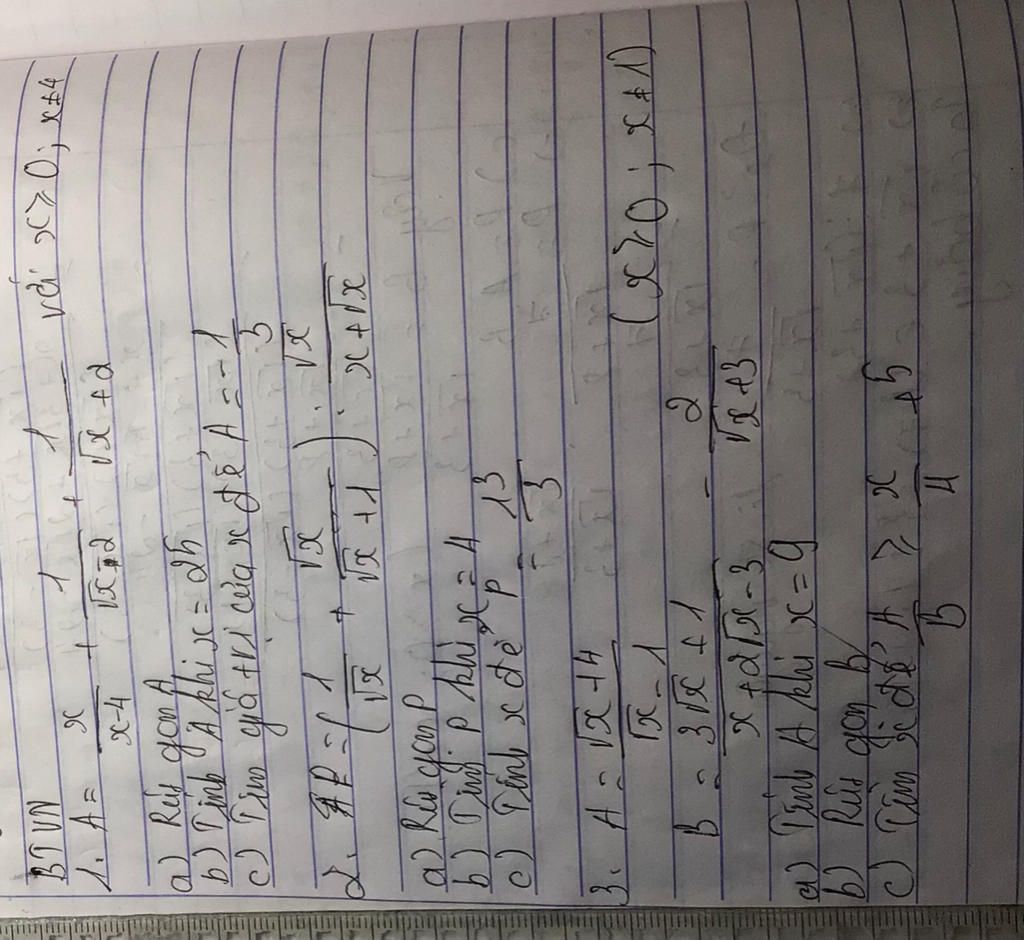 BTVN
1. A = x/(x-4) + 1/(√x-2) + 1/(√x+2) với x ≥ 0; x ≠ 4
a) Rút gọn A
b) Tính A khi x = 25
c) Tìm giá trị của x để A = -1/3
2. P = (1/√x + √x/(√x+1)) : √x/(x+√x)
a) Rút gọn P
b) Tính P khi x = 4
c) Tính x để P = 13/3
3. A = (√x+4)/(√x-1) (x ≥ 0; x ≠ 1)
B = (3√x+1)/(x+2√x-3) - 2/(√x+3)
a) Tính A khi x = 9
b) Rút gọn B
c) Tìm x để A/B ≥ x/4 + 5